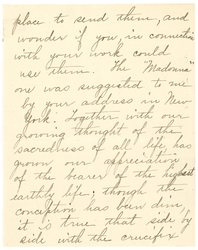 place to send them, and
wonder if you, in connection
with your work could
use them. The "Madonna"
one was suggested to me
by your address in New
York. Together with our
growing thought of the
sacredness of all life, has
grown our appreciation
of the bearer of the highest
earthly life; though the
conception has been dim,
it is true that side by
side with the crucifix